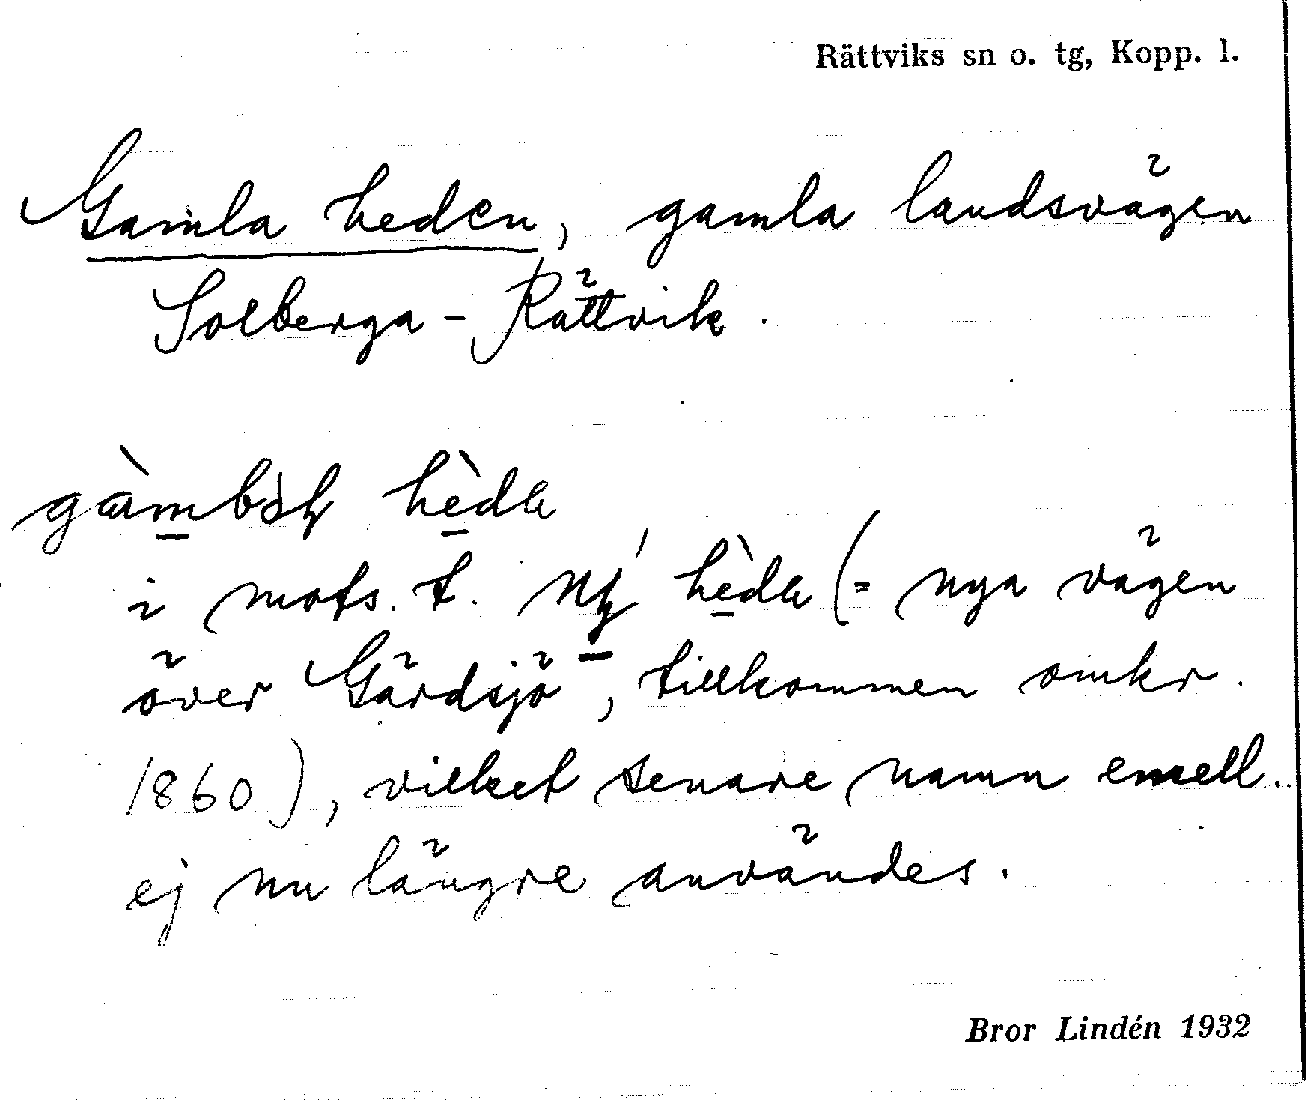 Rättviks sn o. tg, Kopp. l.
Gamla heden, gamla landsvägen
Solberga - Rättvik.
hèdn
i mots. t. hèdn (= nya vägen
över Gärdsjö, tillkommen omkr.
1860), vilket senare namn emell.
ej nu längre användes.
Bror Lindén 1932